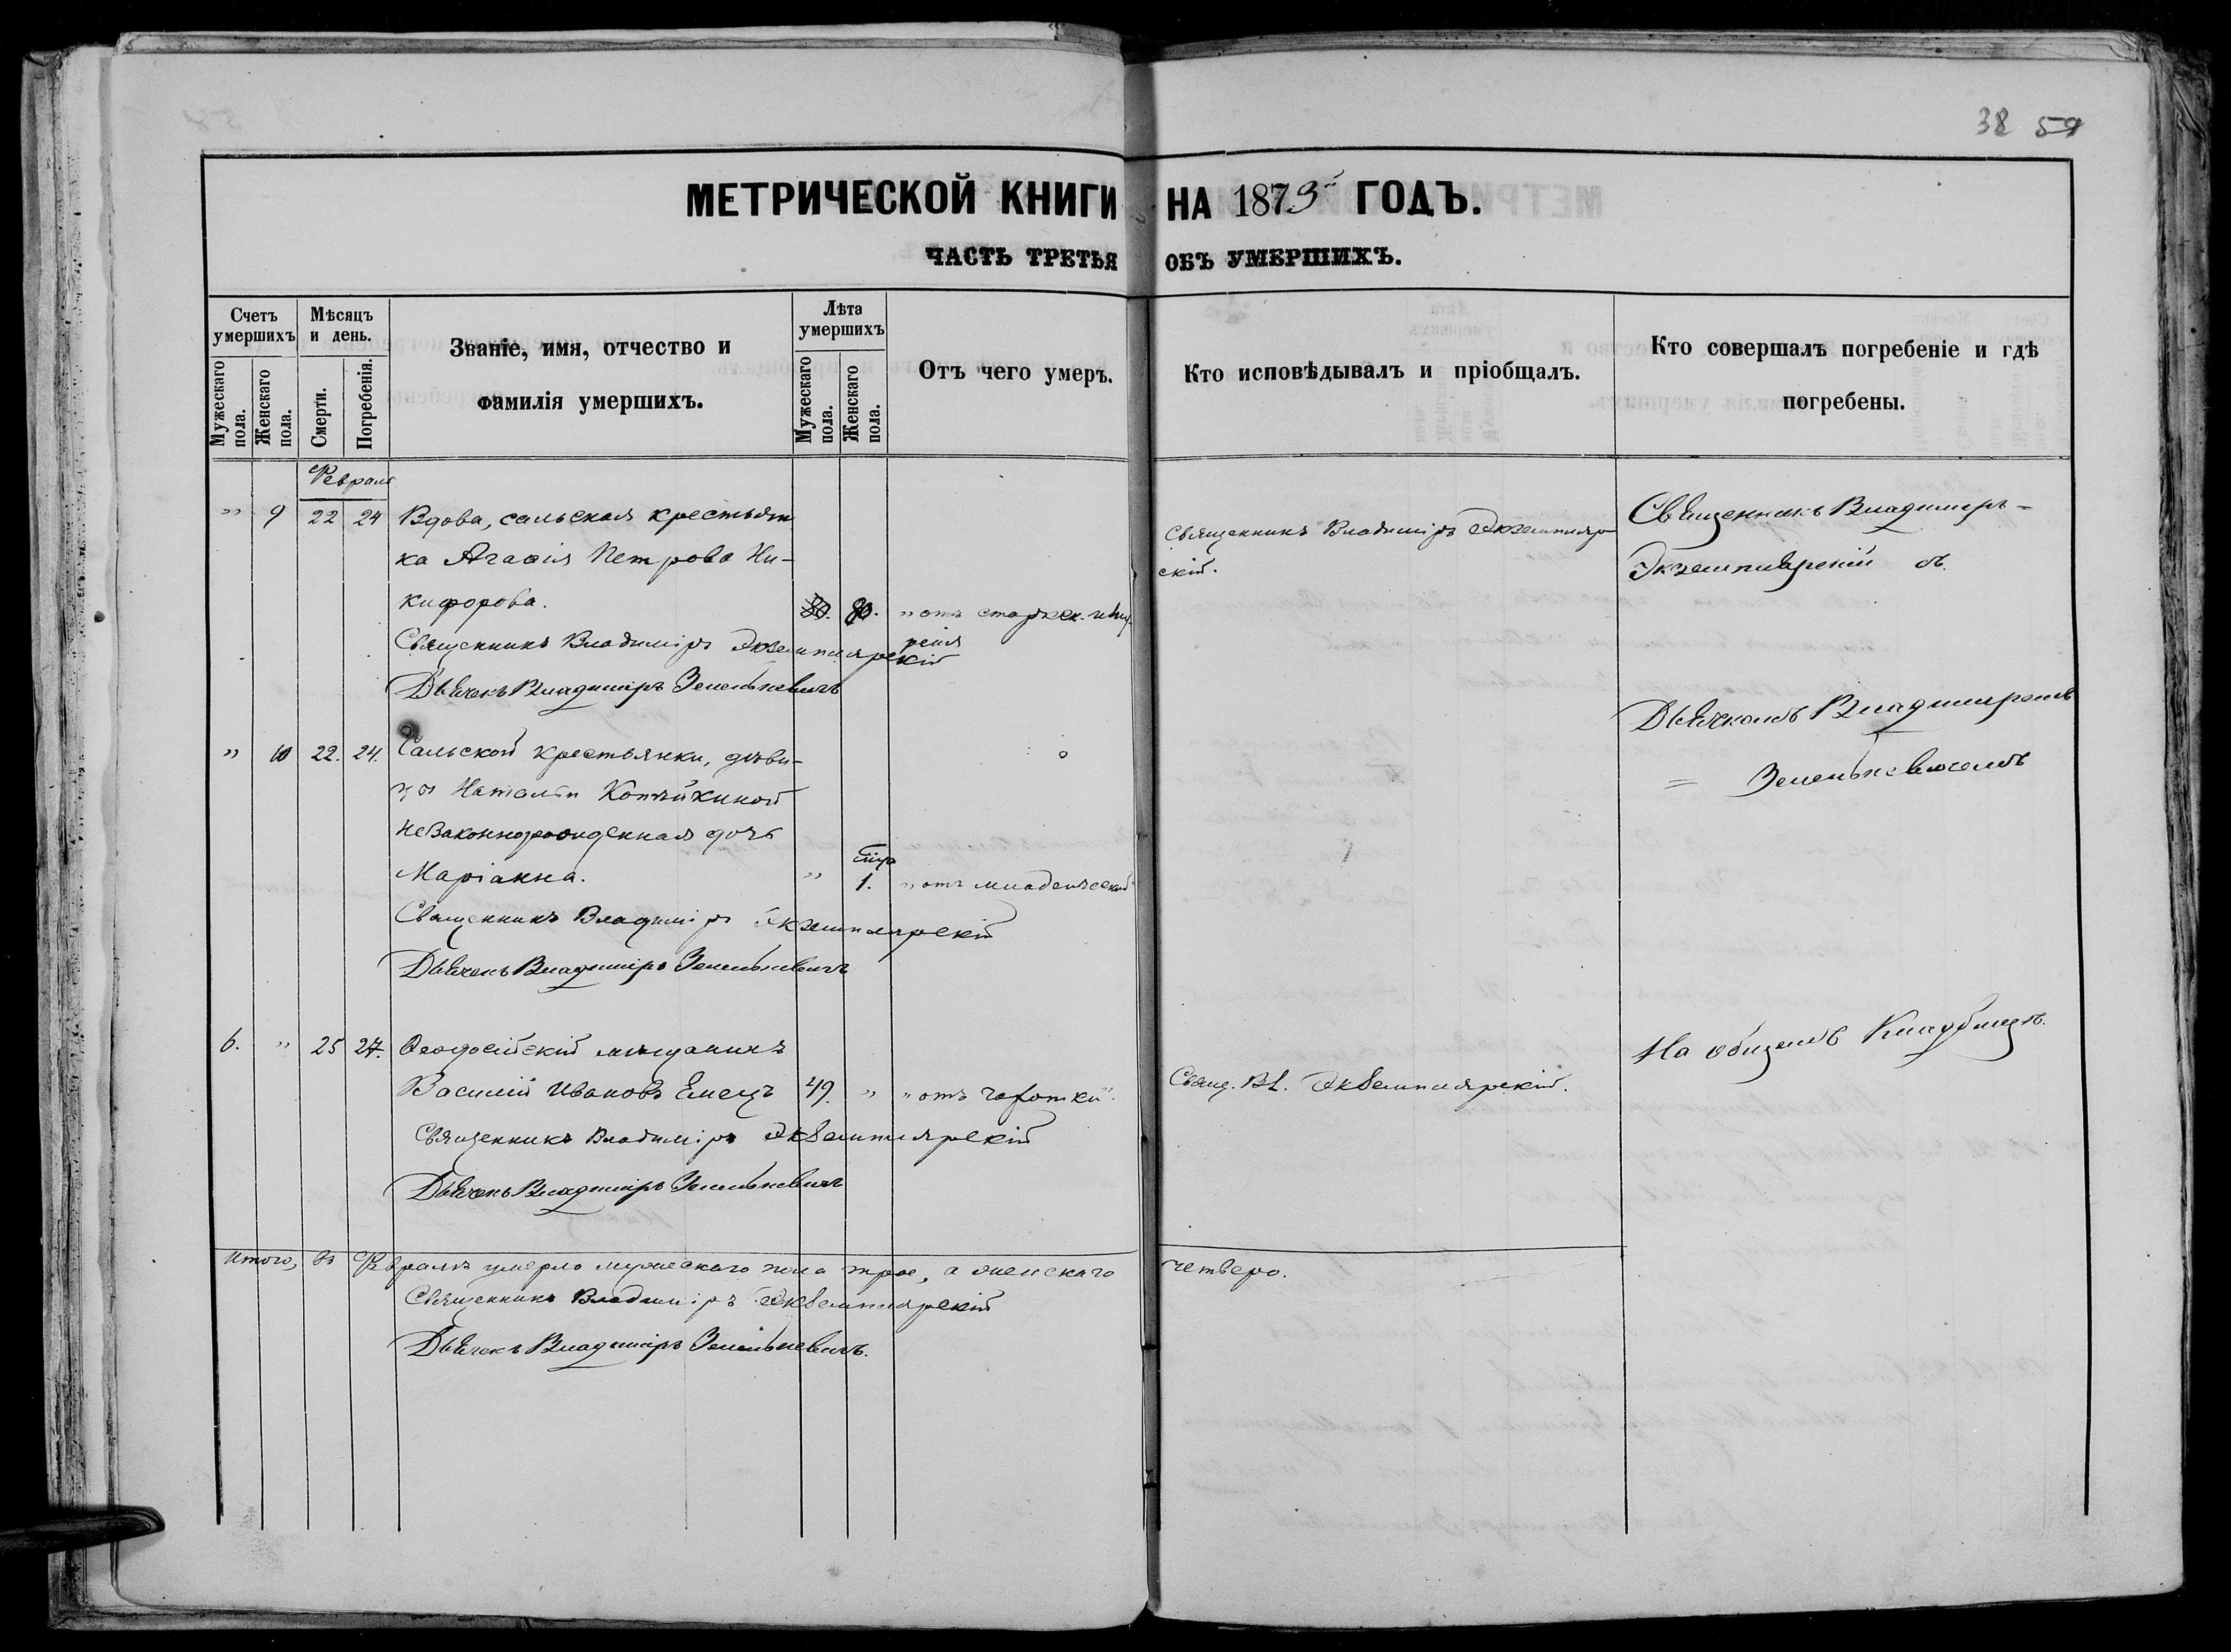 38 59
МЕТРИЧЕСКОЙ КНИГИ НА 1873й ГОДЪ.
ЧАСТЬ ТРЕТЬЯ ОБЪ УМЕРШИХЪ.
Счетъ умершихъ
Мужескаго пола.
Женскаго пола.
Мѣсяцъ и день.
Смерти.
Погребенія.
Званіе, имя, отчество и
фамилія умершихъ.
Лѣта умершихъ
Мужескаго пола.
Женскаго пола.
Отъ чего умеръ.
Кто исповѣдывалъ и пріобщалъ.
Кто совершалъ погребеніе и гдѣ
погребены.
Февраля
" 9 22 24 Вдова, сальская крестьян
ка Агаѳія Петрова Ни-
кифорова. 80. "отъ
Священникъ Владиміръ Экземплярскій
Дьячекъ Владиміръ Зеленкевичъ
Священникъ Владиміръ Экземпляр
скій.
Священникъ Владимиръ -
Экземплярскій съ
Дьячкомъ Владимиромъ
= Зеленкевичемъ
" 10 22. 24. Сальской крестьянки, дѣви-
цы Наталіи Копѣйкиной
незаконнорожденная дочь
Маріанна. " 1. "отъ младенческой
Священникъ Владиміръ Экземплярскій
Дьячекъ Владиміръ Зеленкевичъ
6. " 25 27. Ѳеодосійскій мѣщанинъ
Василій Ивановъ Емецъ 49. " "отъ чахотки".
Священникъ Владиміръ Экземплярскій
Дьячекъ Владиміръ Зеленкевичъ
Свящ. Вл. Экземплярскій.
На общемъ Кладбищѣ.
Итого, въ Февралѣ умерло мужескаго пола трое, а женскаго четверо.
Священникъ Владиміръ Экземплярскій
Дьячекъ Владиміръ Зеленкевичъ.